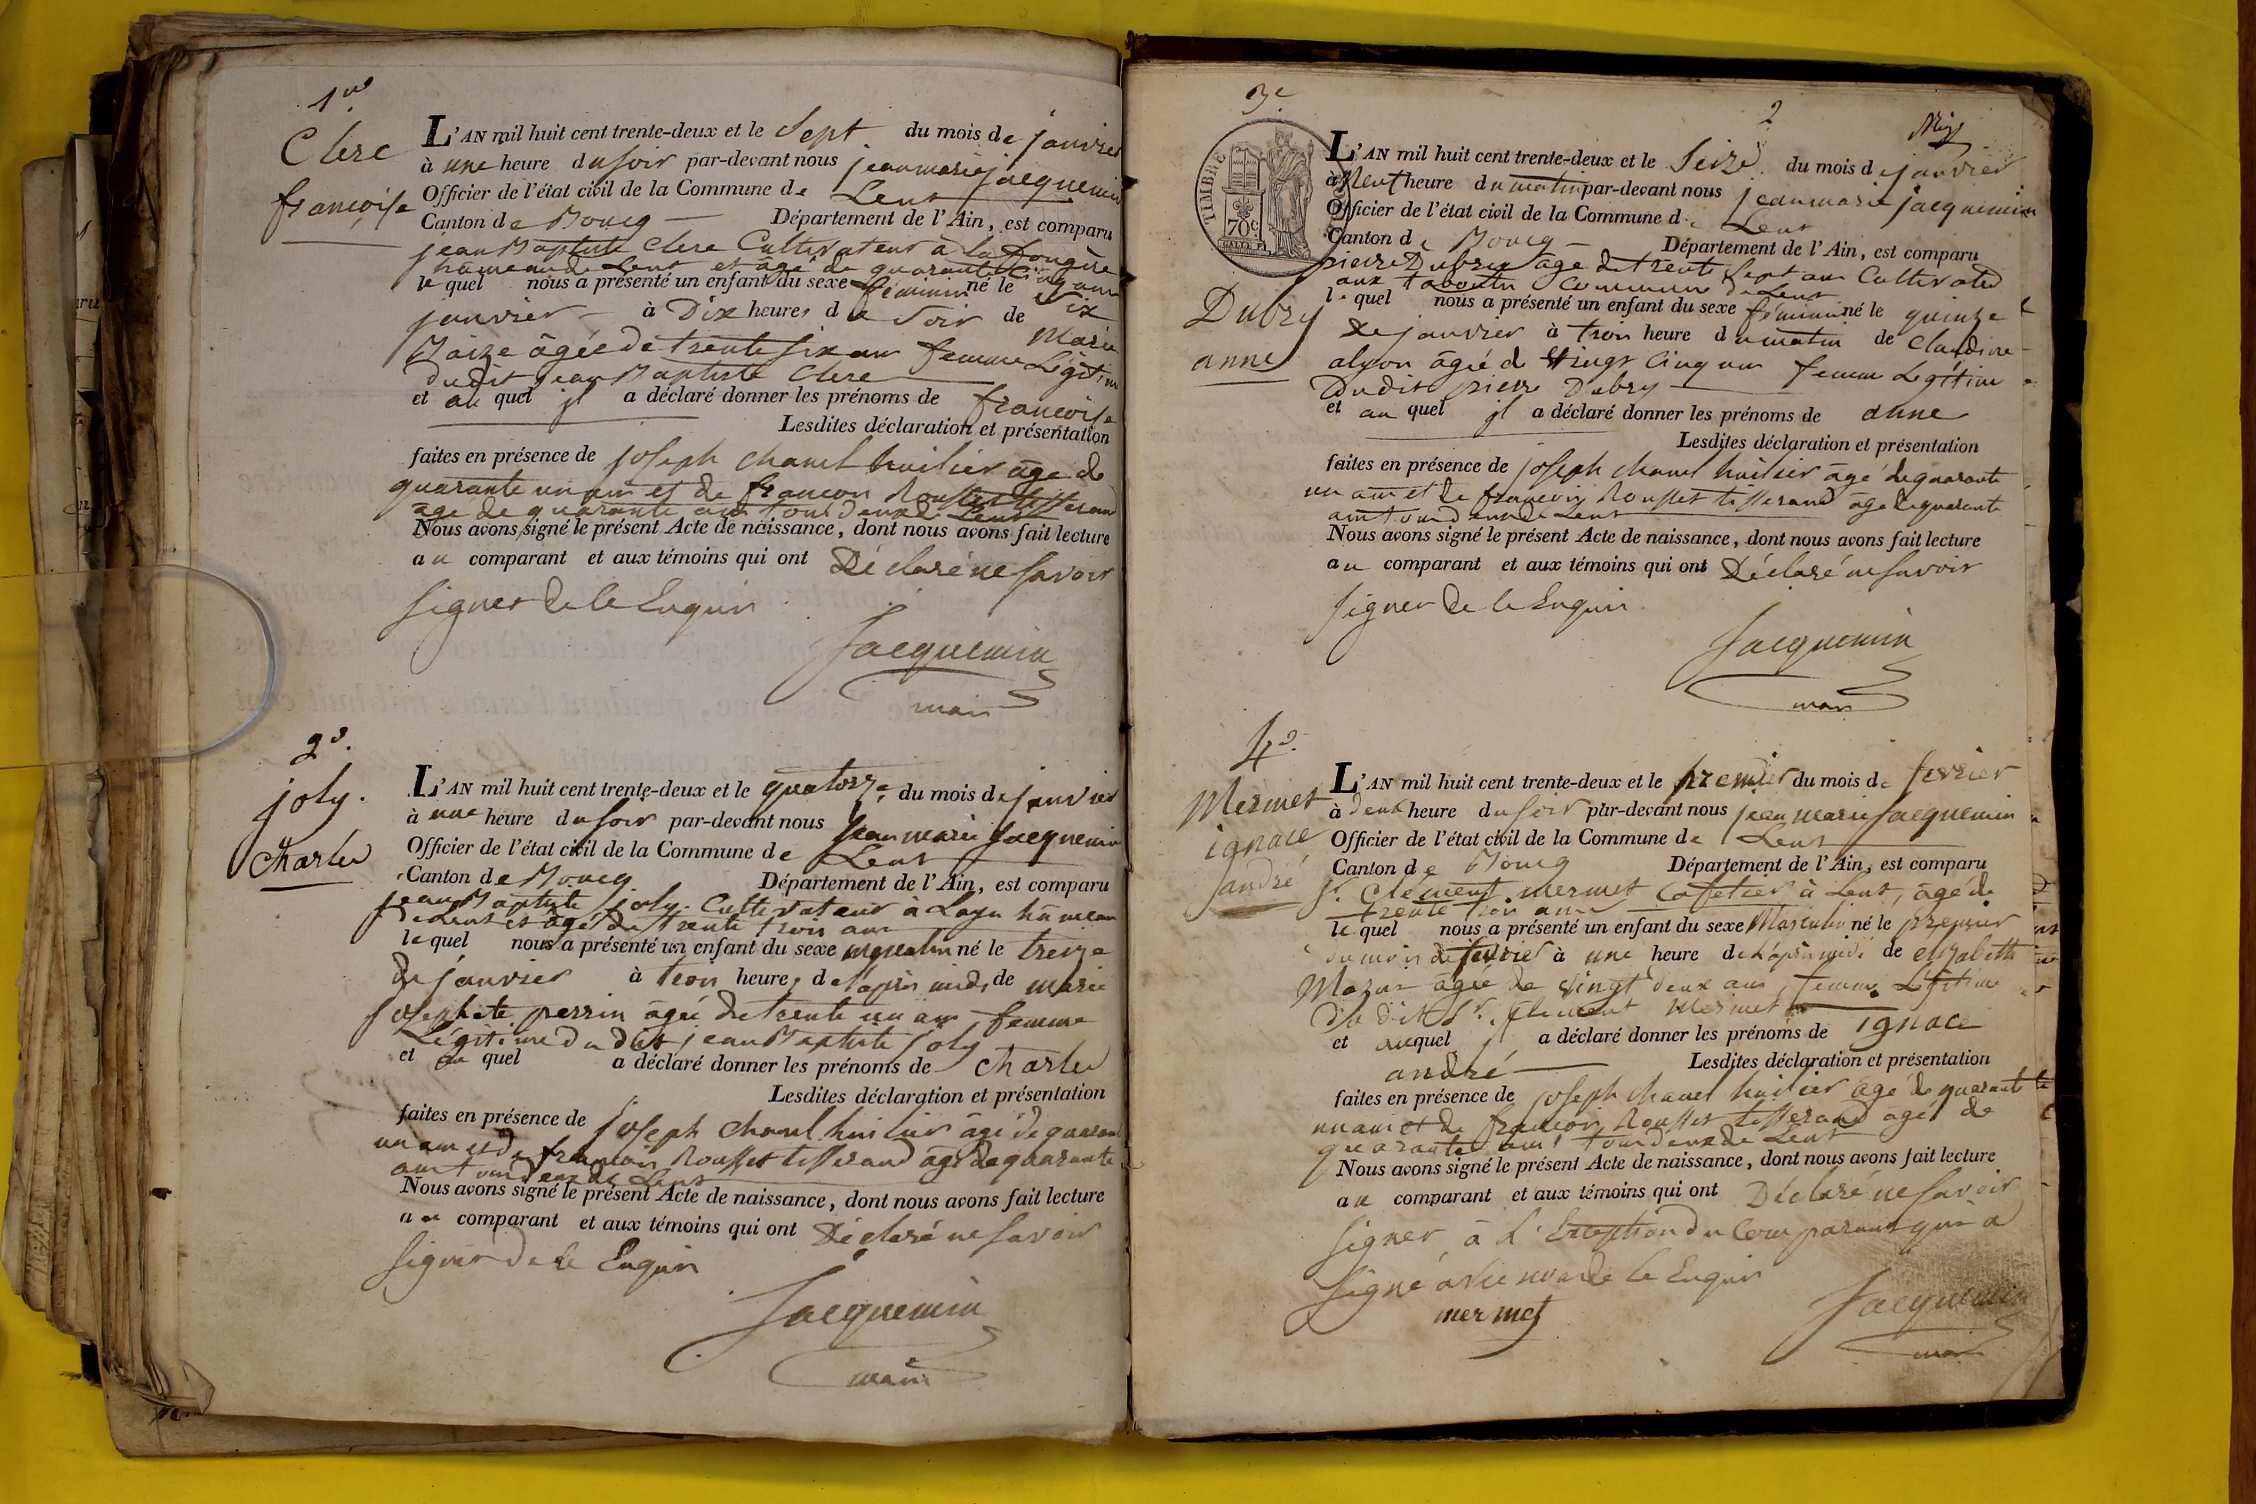 1re
Clerc
françoise
L'AN mil huit cent trente-deux et le Sept du mois de janvier
à une heure du soir par-devant nous jean marie jacquemin
Officier de l'état civil de la Commune de Lent
Canton de Bourg Département de l'Ain, est comparu
jean Baptiste Clerc Cultivateur à la fougère
hameau de Lent et âgé de quarante cinq ans
lequel nous a présenté un enfant du sexe féminin né le Six
janvier à Dix heures du Soir de Marie
Baize âgée de trente six ans femme Légitime
dudit jean Baptiste Clerc
et auquel il a déclaré donner les prénoms de françoise
Lesdites déclaration et présentation
faites en présence de joseph chanel huilier âgé de
quarante un ans et de françois Rousset tisserand
âgé de quarante ans tous deux de Lent
Nous avons signé le présent Acte de naissance, dont nous avons fait lecture
au comparant et aux témoins qui ont Déclaré ne savoir
signer de ce Enquis
Jacquemin
maire
2e.
joly.
charles
L'AN mil huit cent trente-deux et le quatorze du mois de janvier
à une heure du soir par-devant nous jean marie jacquemin
Officier de l'état civil de la Commune de Lent
Canton de Bourg Département de l'Ain, est comparu
jean Baptiste joly. Cultivateur à Layu hameau
de Lent et âgé de trente trois ans
lequel nous a présenté un enfant du sexe masculin né le treize
de janvier à trois heures de l'après midi de marie
josephete perrin âgée de trente un ans femme
Légitime du dit jean Baptiste joly
et auquel a déclaré donner les prénoms de charles
Lesdites déclaration et présentation
faites en présence de joseph chanel huilier âgé de quarante
un ans et de françois Rousset tisserand âgé de quarante
ans tous deux de Lent
Nous avons signé le présent Acte de naissance, dont nous avons fait lecture
au comparant et aux témoins qui ont Déclaré ne savoir
signer de ce Enquis
Jacquemin
maire
3e
2
TIMBRE
70c
Dubry
anne
L'AN mil huit cent trente-deux et le Seize du mois de janvier
à Neuf heure du matin par-devant nous jean marie jacquemin
Officier de l'état civil de la Commune de Lent
Canton de Bourg Département de l'Ain, est comparu
pierre Dubry âgé de trente sept ans Cultivateur
aux commune de Lent
lequel nous a présenté un enfant du sexe féminin né le quinze
de janvier à trois heure du matin de claudine
alyon âgée de vingt cinq ans femme Légitime
Dudit pierre Dubry
et auquel il a déclaré donner les prénoms de anne
Lesdites déclaration et présentation
faites en présence de joseph chanel huilier âgé de quarante
un ans et de françois Rousset tisserand âgé de quarante
ans tous deux de Lent
Nous avons signé le présent Acte de naissance, dont nous avons fait lecture
au comparant et aux témoins qui ont Déclaré ne savoir
signer de ce Enquis.
Jacquemin
maire
4e.
Mermet
ignace
andré
L'AN mil huit cent trente-deux et le premier du mois de fevrier
à deux heure du soir par-devant nous jean marie jacquemin
Officier de l'état civil de la Commune de Lent
Canton de Bourg Département de l'Ain, est comparu
Sr. Clement mermet Cafetier à Lent, âgé de
trente trois ans
lequel nous a présenté un enfant du sexe Masculin né le premier
du mois de fevrier à une heure de l'après midi de elizabeth
Mazur âgée de vingt deux ans, femme Légitime
du dit Sr. Clement Mermet
et auquel il a déclaré donner les prénoms de ignace
andré
Lesdites déclaration et présentation
faites en présence de joseph chanel huilier âgé de quarante
un ans et de françois Rousset tisserand agé de
quarante ans tous deux de Lent
Nous avons signé le présent Acte de naissance, dont nous avons fait lecture
au comparant et aux témoins qui ont Déclaré ne savoir
signer, à l'Exception du Comparant qui a
signé avec nous de ce Enquis
mermet
Jacquemin
maire